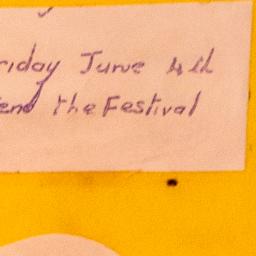 riday June 4th
end the Festival